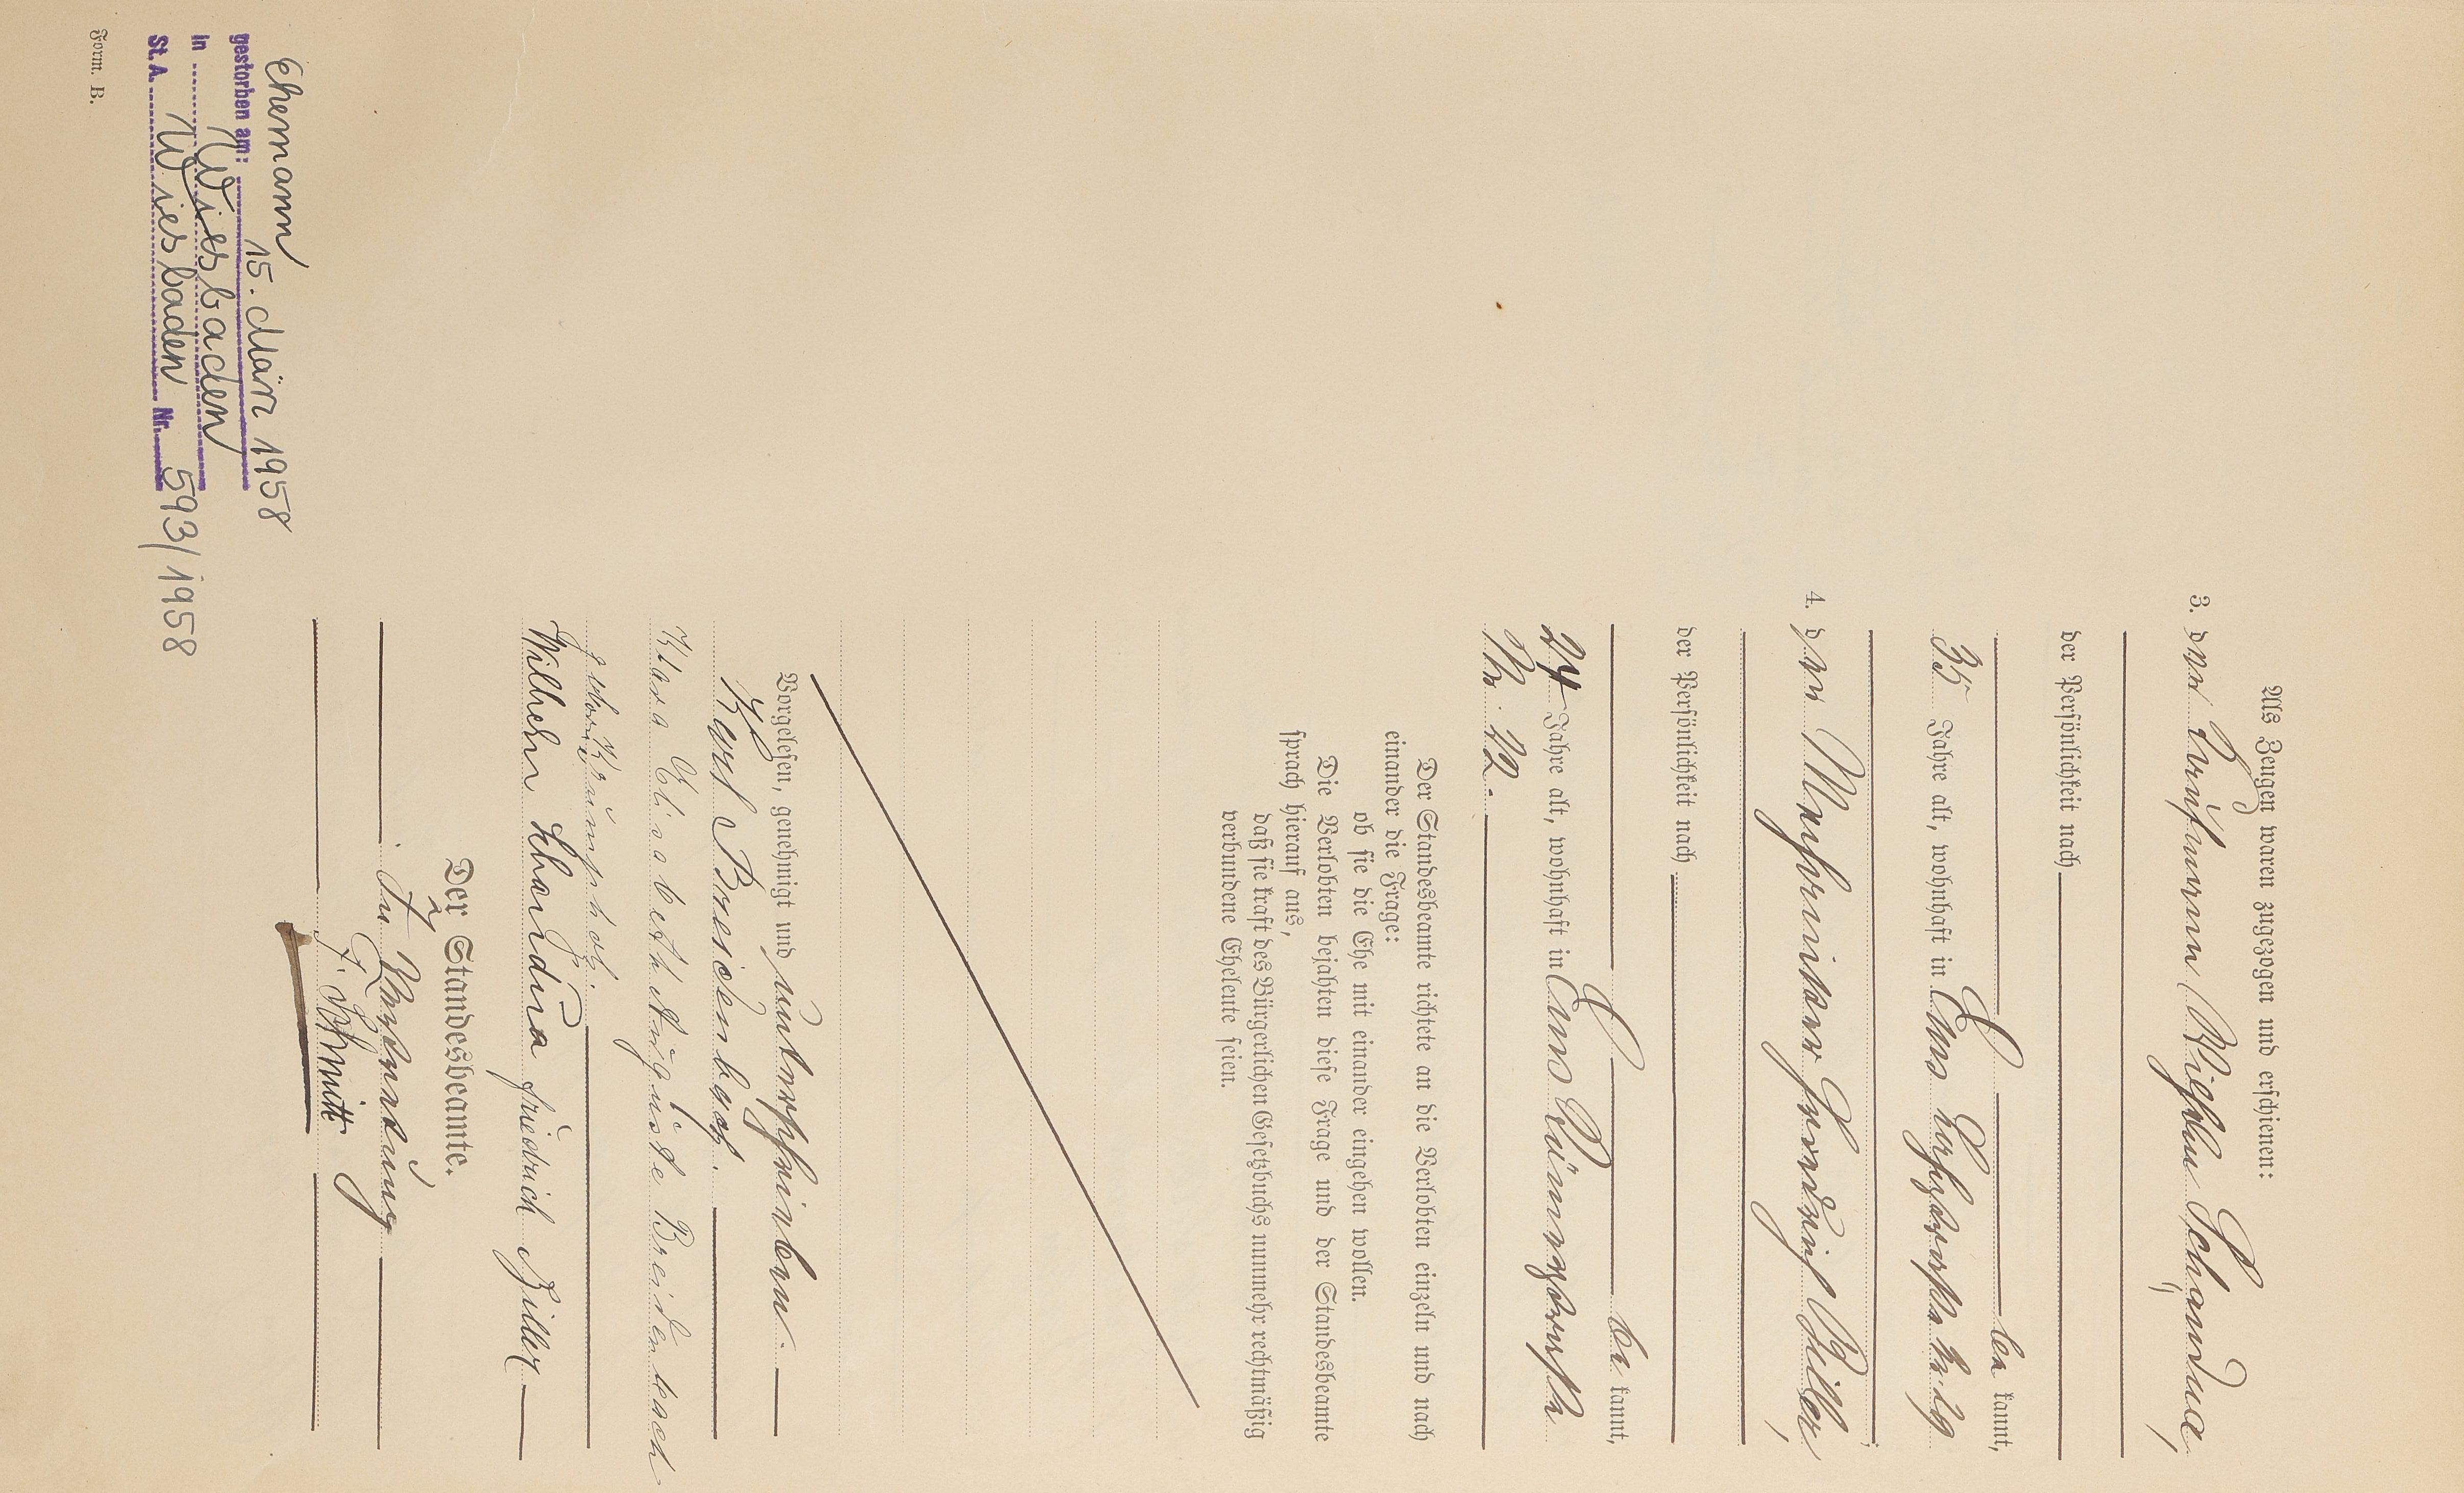 Als Zeugen waren zugezogen und erschienen:
3. der Kaufmann Wilhelm Schandua,
der Persönlichkeit nach
be kannt,
35 Jahre alt, wohnhaft in Ems
4. der Mechaniker Friedrich Ziller,
der Persönlichkeit nach
be kannt,
24 Jahre alt, wohnhaft in Ems Römerstraße
Nr. 22.
Der Standesbeamte richtete an die Verlobten einzeln und nach
einander die Frage:
ob sie die Ehe mit einander eingehen wollen.
Die Verlobten bejahten diese Frage und der Standesbeamte
sprach hierauf aus,
daß sie kraft des Bürgerlichen Gesetzbuchs nunmehr rechtmäßig
verbundene Eheleute seien.
Vorgelesen, genehmigt und unterschrieben.
Karl Breidenbach.
Klara Elisabeth Auguste Breidenbach
Wilhelm Schandua Friedrich Ziller
Der Standesbeamte.
In Vertretung
Schmitt
Ehemann
gestorben am: 15. März 1958
in Wiesbaden
St. A. Wiesbaden Nr. 593/1958
Form. B.